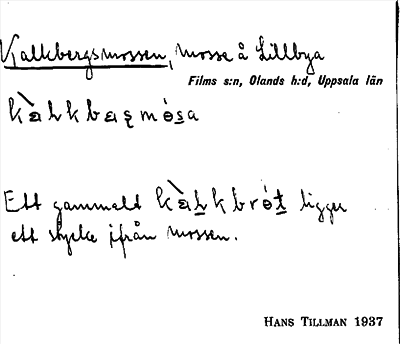 Kalkbergsmossen, mosse å Lillbya
Films s:n, Olands h:d, Uppsala län
Ett gammalt ligger
ett stycke ifrån mossen.
HANS TILLMAN 1937